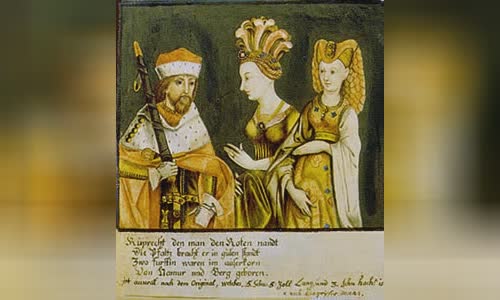 Rüprecht den man den Roten nandt
Die Pfaltz bracht er in guten standt
Zwo fürstin waren im auserkorn
Von Namur und Berg geboren.
ist auvral nach dem Original, welches 5 Schu 8 Zoll Lang, und 3 Schu hoch ist